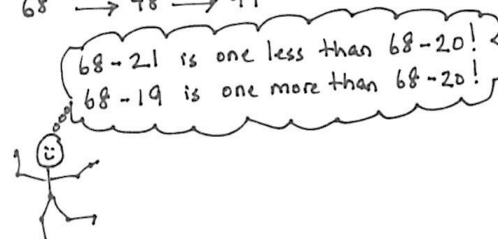 68
68-21 is one less than 68-20!
68-19 is one more than 68-20!